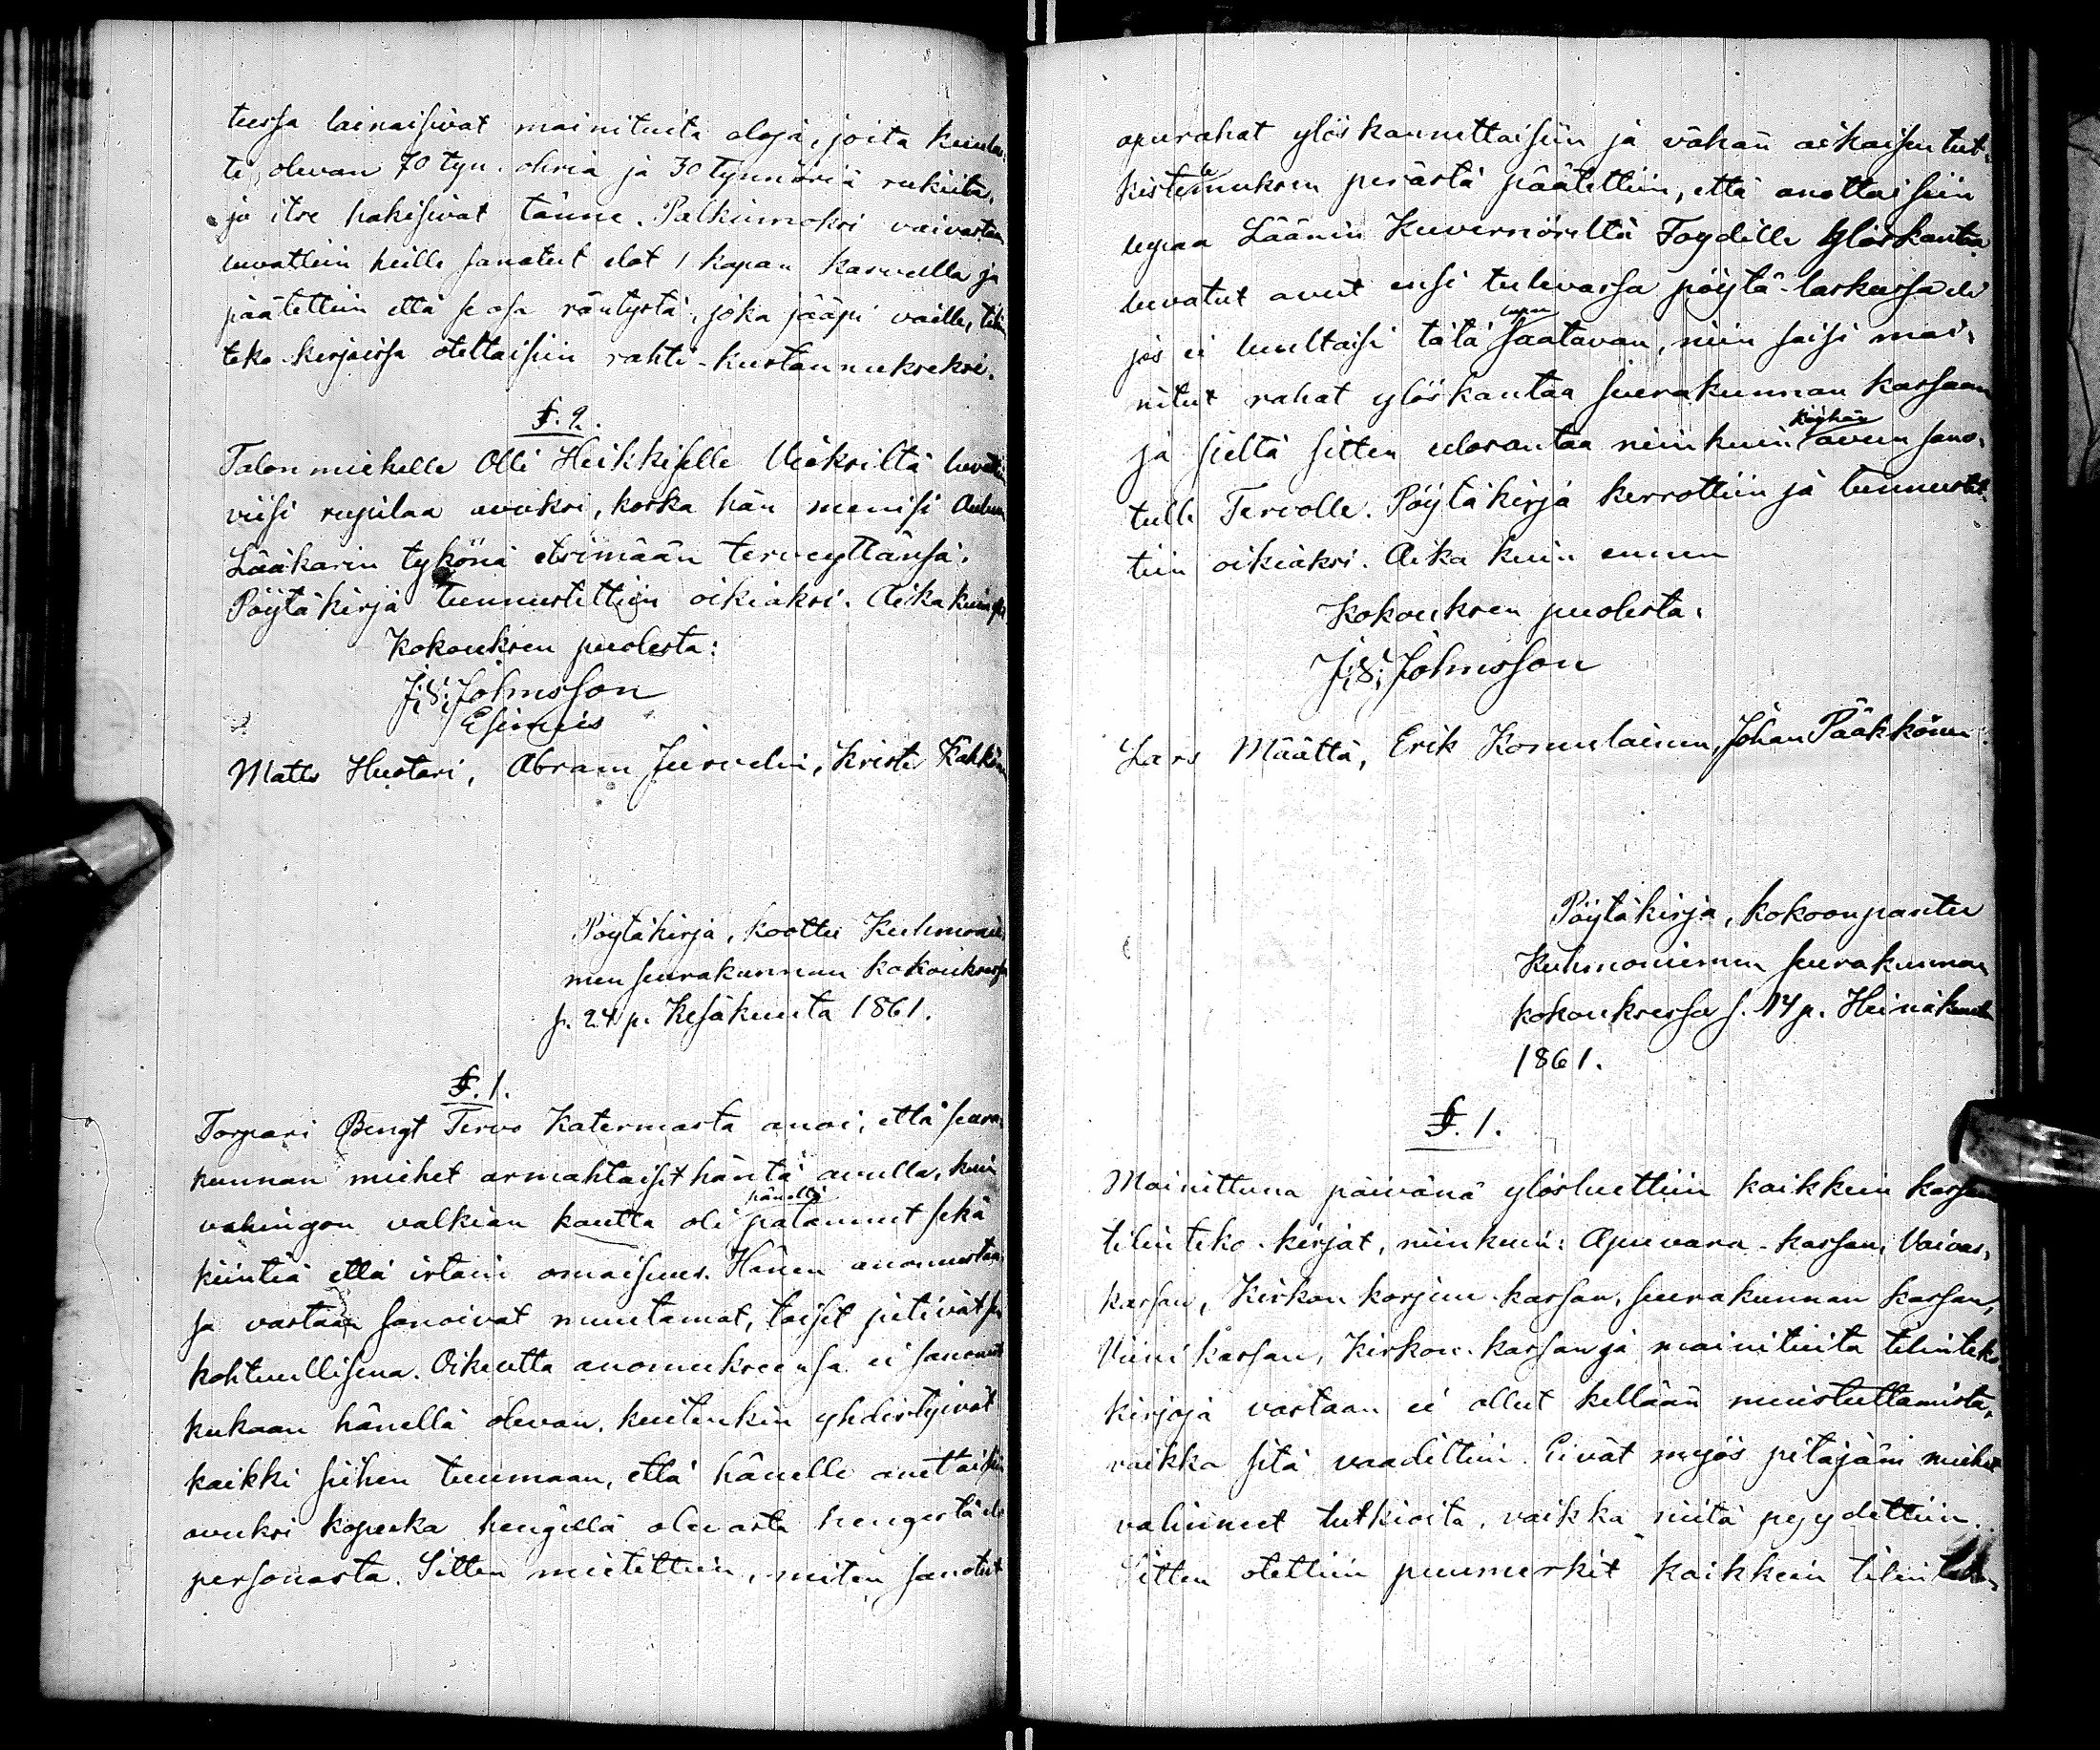 tuessa lainaisivat mainituita eloja, joita kuulu-
ti olevan 70 tyn. ohria ja 30 tynnöriä rukiita,
ja itse hakisivat tänne. Palkinnoksi vaivastan
luvattiin heille sanotut elot 1 kapan kasvulla ja
päätettiin että se osa räntystä, joka jääpi vaille, tilin
teko-kirjoissa otettaisiin rahti-kustannukseksi.
§. 2.
Talonmiehelle Olli Heikkiselle Vieksiltä luvattiin
viisi ruplaa avuksi, koska hän menisi Oulun
Lääkärin tykönä etsimään terveyttänsä.
Pöytäkirja tunnustettiin oikiaksi. Aika kuin
Kokouksen puolesta:
J. S. Johnsson
Esimies
Matts Hustari, Abram Juvelin, Kristi Kähkön
Pöytäkirja, koottu Kuhmonie-
men seurakunnan kokouksessa
s. 24 p. Kesäkuuta 1861.
§. 1.
Torpari Bengt Tervo Katermasta anoi, että seura-
kunnan miehet armahtaisit häntä avulla, kuin
vahingon valkian kautta oli hänellä palannut sekä
kiintiä että irtain omaisuus. Hänen anomustan-
sa vastaan sanoivat muutamat, toiset pitivät sen
kohtuullisena. Oikeutta anomukseensa ei sanonut
kukaan hänellä olevan. kuitenkin yhdistyivät
kaikki siihen tuumaan, että hänelle anettaisiin
avuksi kopeeka hengillä olevasta hengestä eli
personasta. Sitten mietittiin, miten sanotut
apurahat ylöskannettaisiin ja vähän aikaisen tut-
kistelemuksen perästä päätettiin, että anottaisiin
lupaa Läänin Kuvernöriltä Fogdille ylöskantaa
luvatut avut ensi tulevassa pöytä-laskussa eli
jos ei luultaisi tätä lupaa saatavan, niin saisi mai-
nitut rahat ylöskantaa seurakunnan kassaan
ja sieltä sitten ulosantaa niinkuin köyhän avun sano-
tulle Tervolle. Pöytäkirja kerrottiin ja tunnustet-
tiin oikiaksi. Aika kuin ennen
Kokouksen puolesta:
J. S. Johnsson
Lars Määttä, Erik Komulainen, Johan Pääkkönen.
Pöytäkirja, kokoonpantu
Kuhmoniemen seurakunnan
kokouksessa s. 14 p. Heinäkuuta
1861.
§. 1.
Mainittuna päivänä ylösluettiin kaikkein kassan
tilinteko-kirjat, niinkuin: Apuvara-kassan, Vaivas-
kassan, Kirkon korjuu-kassan, seurakunnan kassan,
Viinikassan, Kirkon-kassan ja mainituita tilinteko-
kirjoja vastaan ei ollut kellään muistuttamista,
vaikka sitä vaadittiin. Eivät myös pitäjään miehet
valinneet tutkioita, vaikka niitä pyydettiin.
Sitten otettiin puumerkit kaikkein tilinteko-